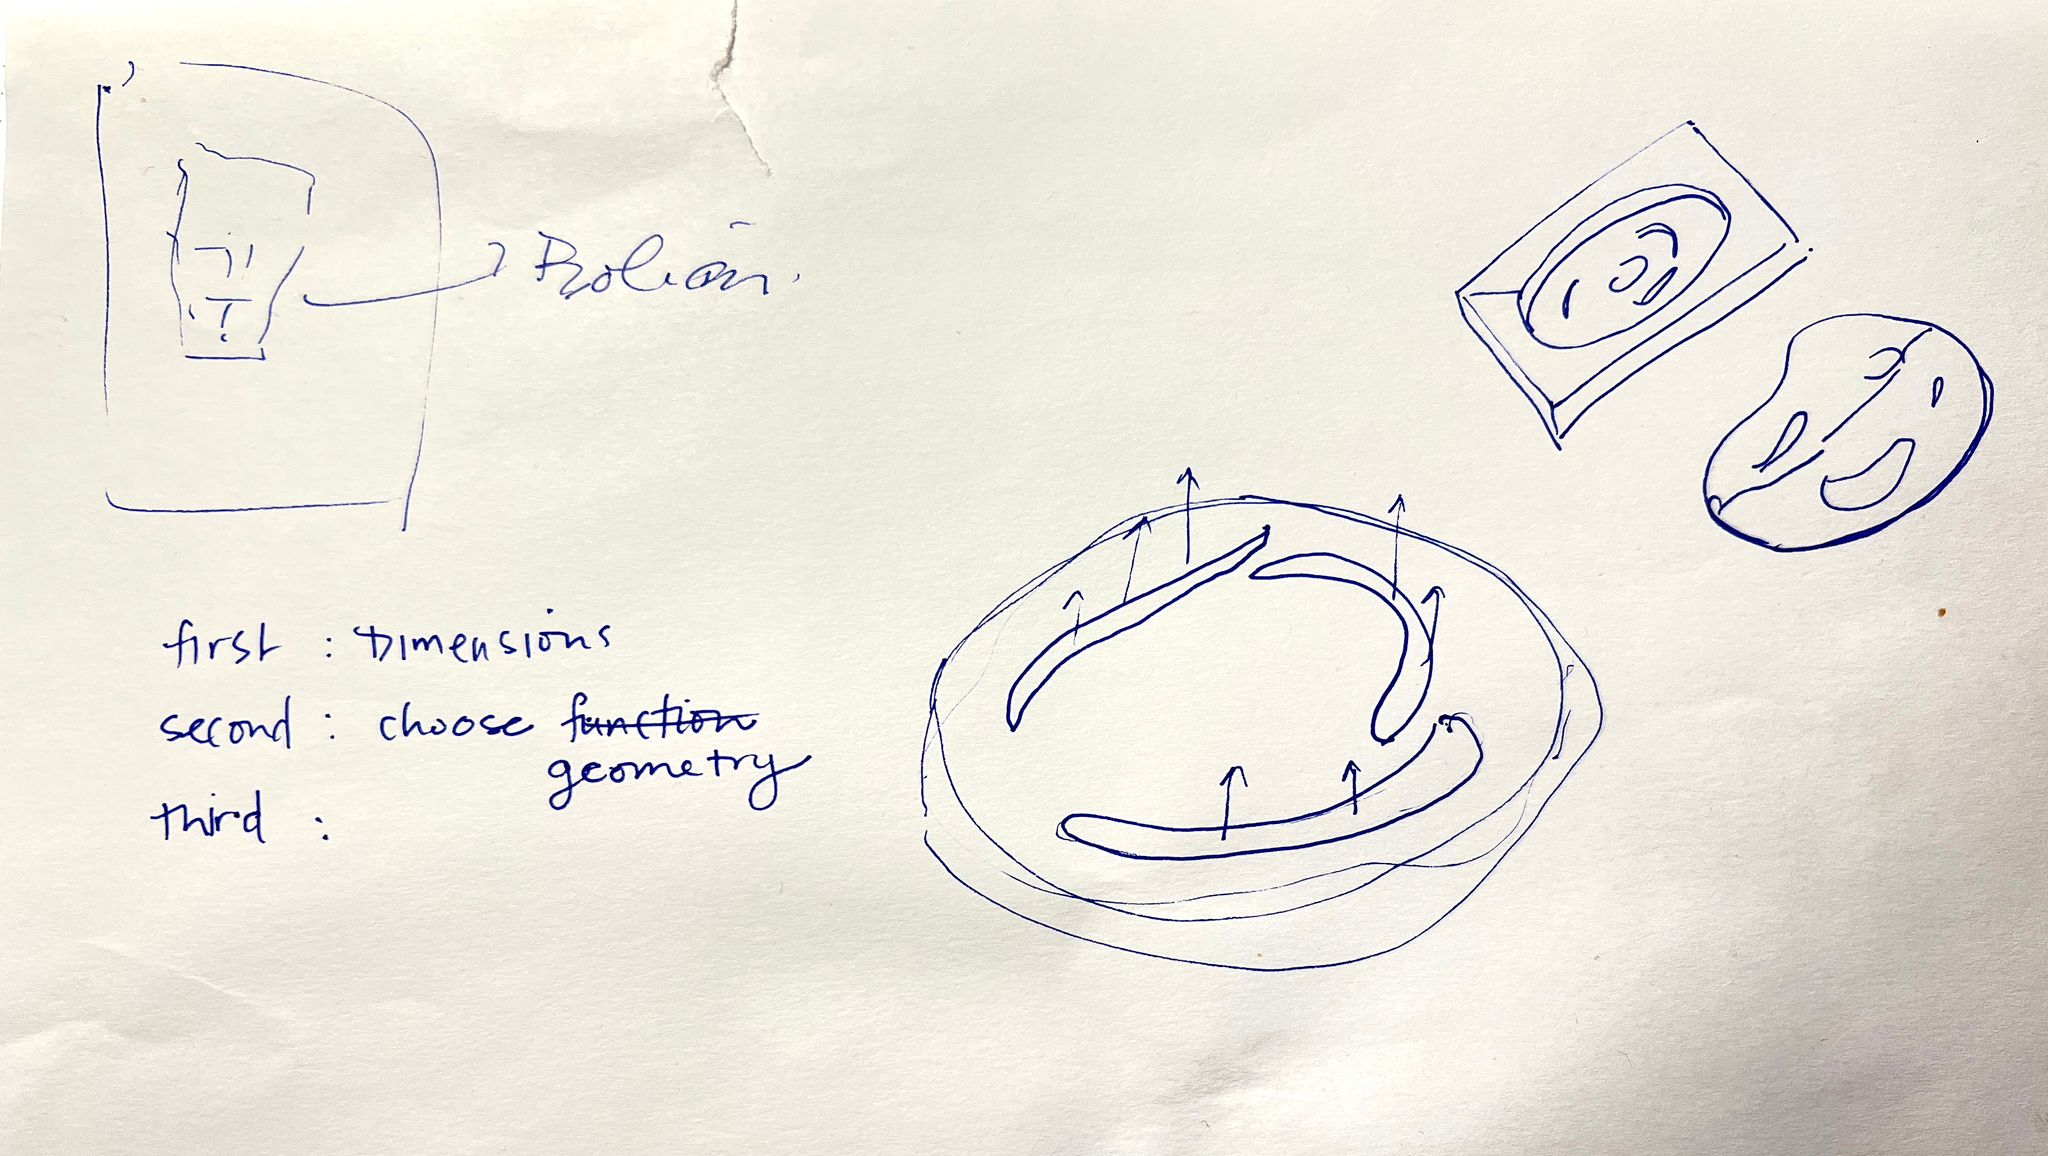 first : Dimensions
second : choose function
geometry
third :